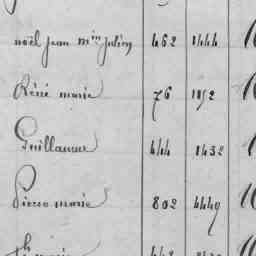 noël jean m^in julien 462 1444
Réné marie 76 1852
Guillaume 444 1432
Pierre marie 802 4449